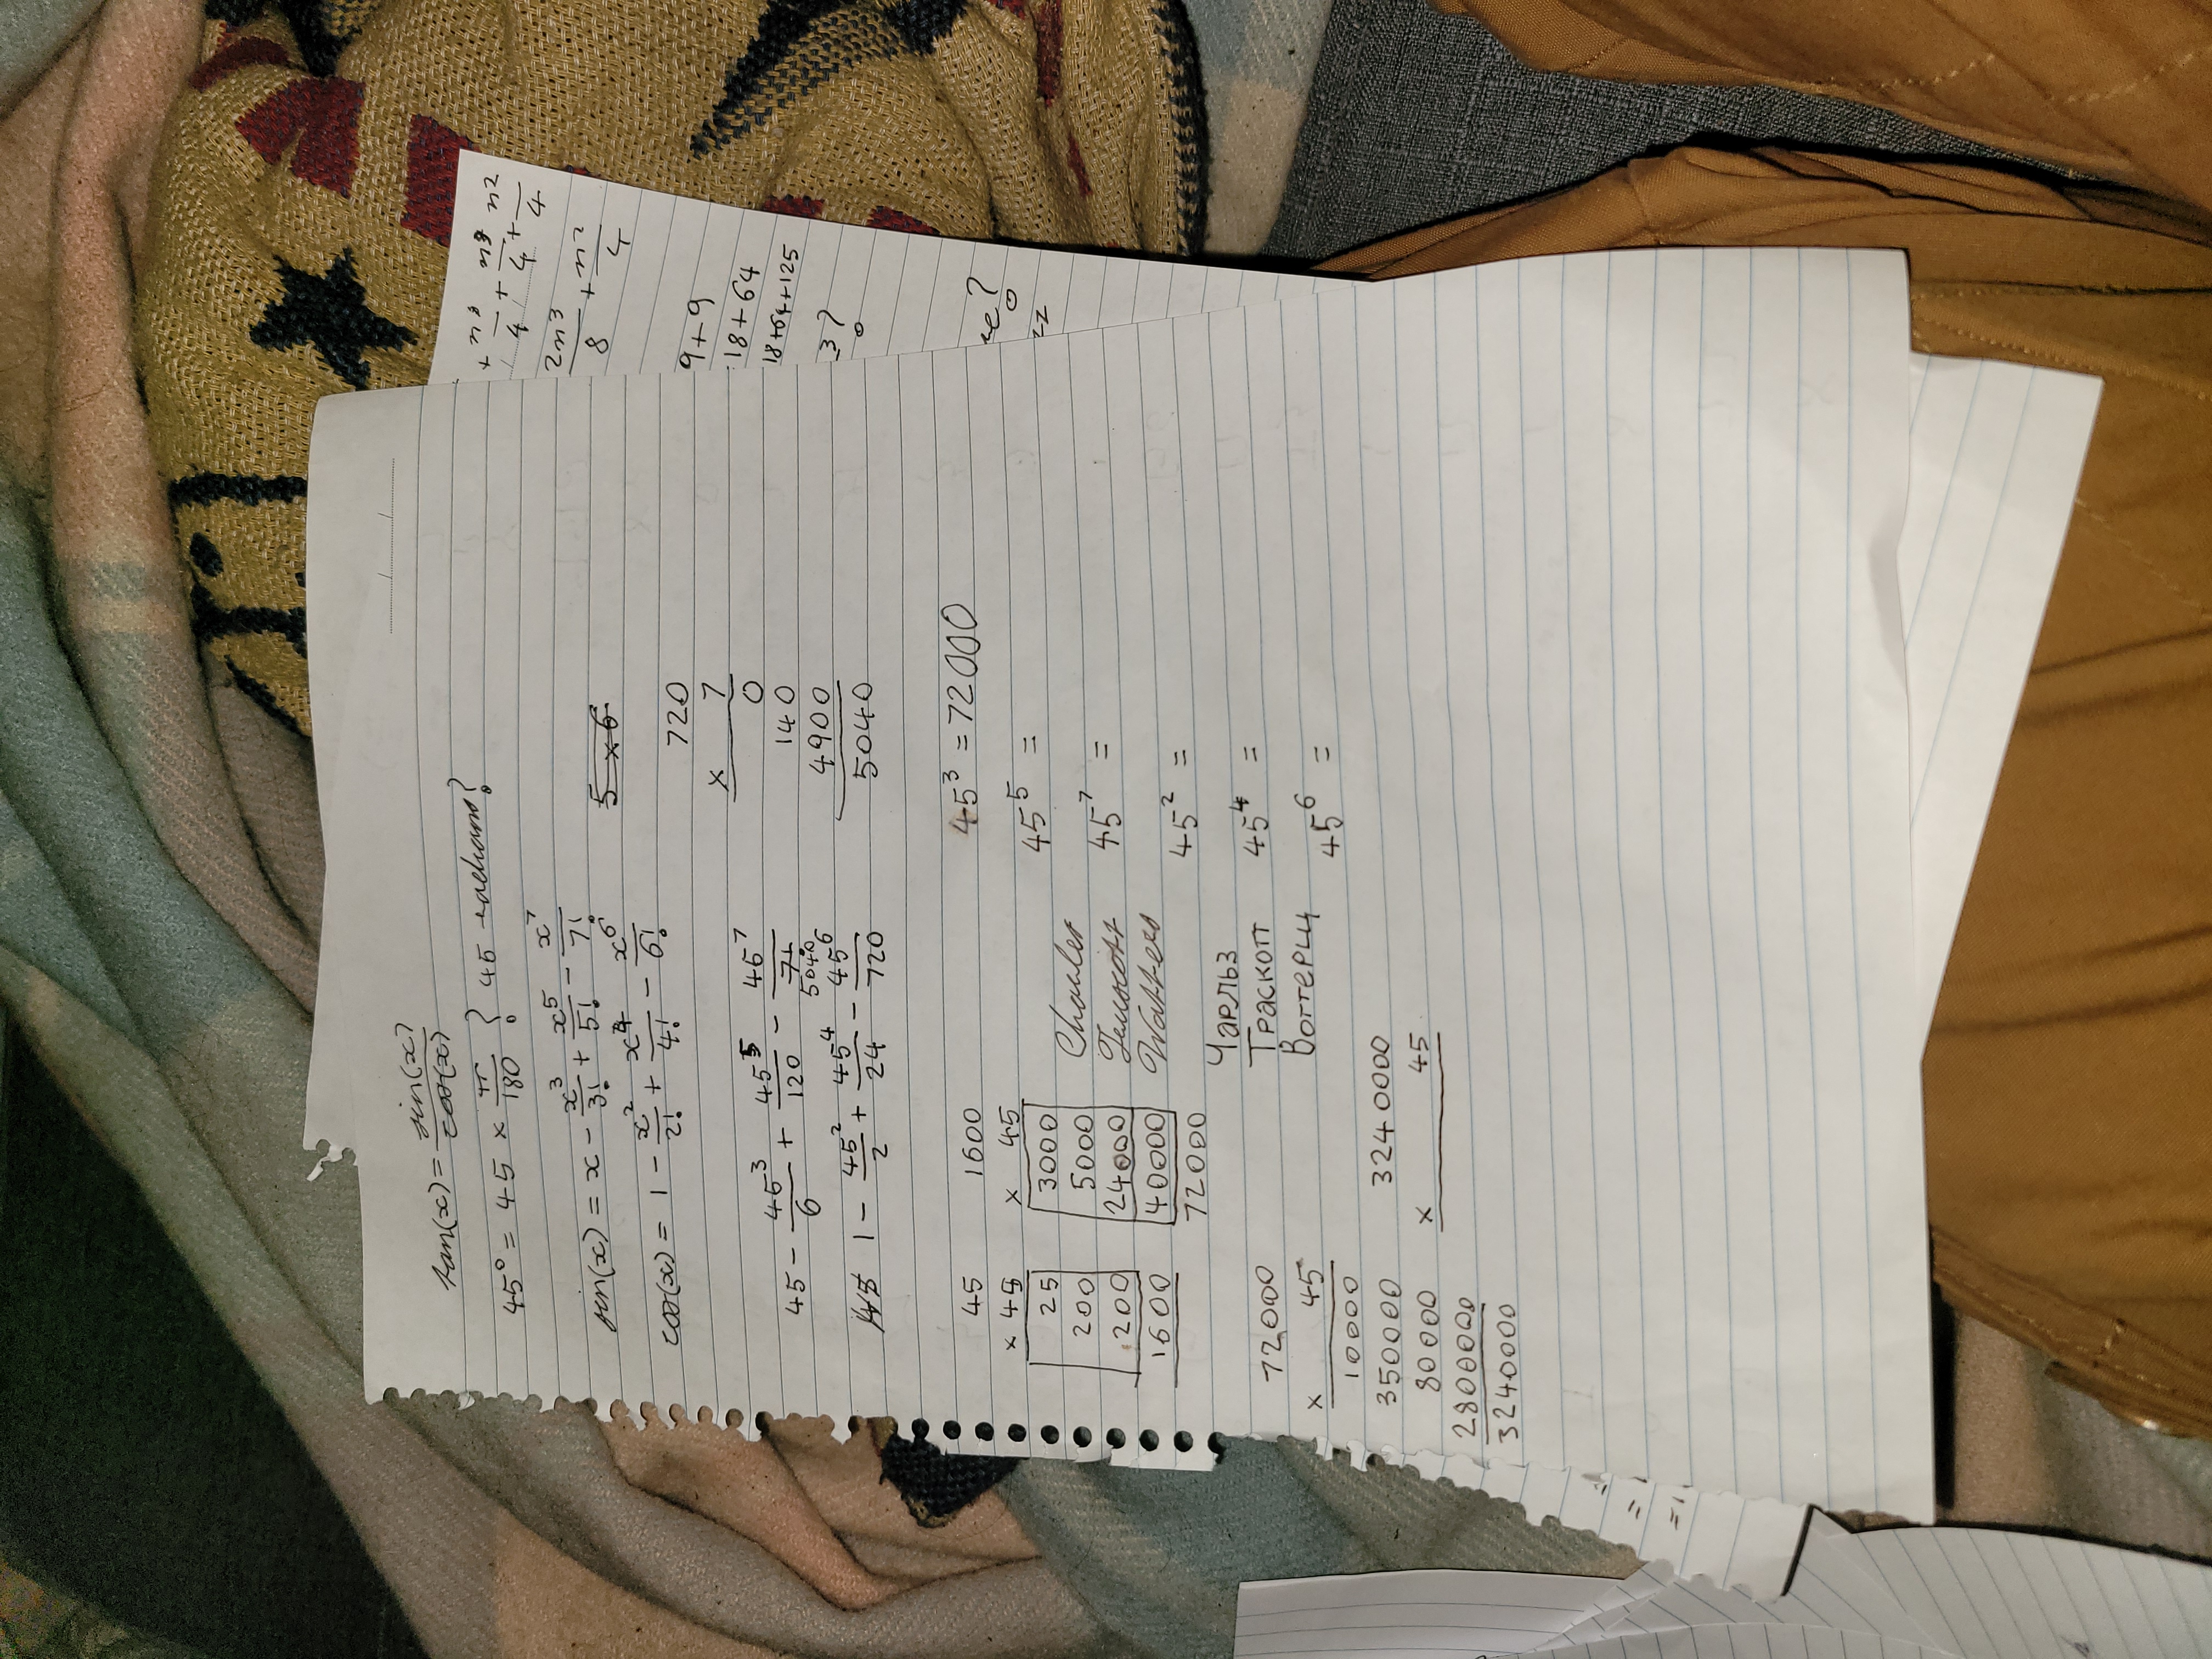 tan(x) = sin(x)/cos(x)
45° = 45 × π/180 ? 45 radians?
sin(x) = x - x³/3! + x⁵/5! - x⁷/7!
cos(x) = 1 - x²/2! + x⁴/4! - x⁶/6!
5 × 6
720
× 7
0
140
4900
5040
45 - 45³/6 + 45⁵/120 - 45⁷/7!
5040
45 1 - 45²/2 + 45⁴/24 - 45⁶/720
45
× 45
25
200
200
1600
1600
× 45
3000
5000
24000
40000
72000
Charles
Truscott
Watters
Чарльз
Траскотт
Воттерщ
45³ = 72000
45⁵ =
45⁷ =
45² =
45⁴ =
45⁶ =
72000
× 45
10000
350000
80000
2800000
3240000
3240000
× 45
+ n³/4 + n³/4 + n²/4
2n³/8 + n²/4
9+9
18+64
18+64+125
3?